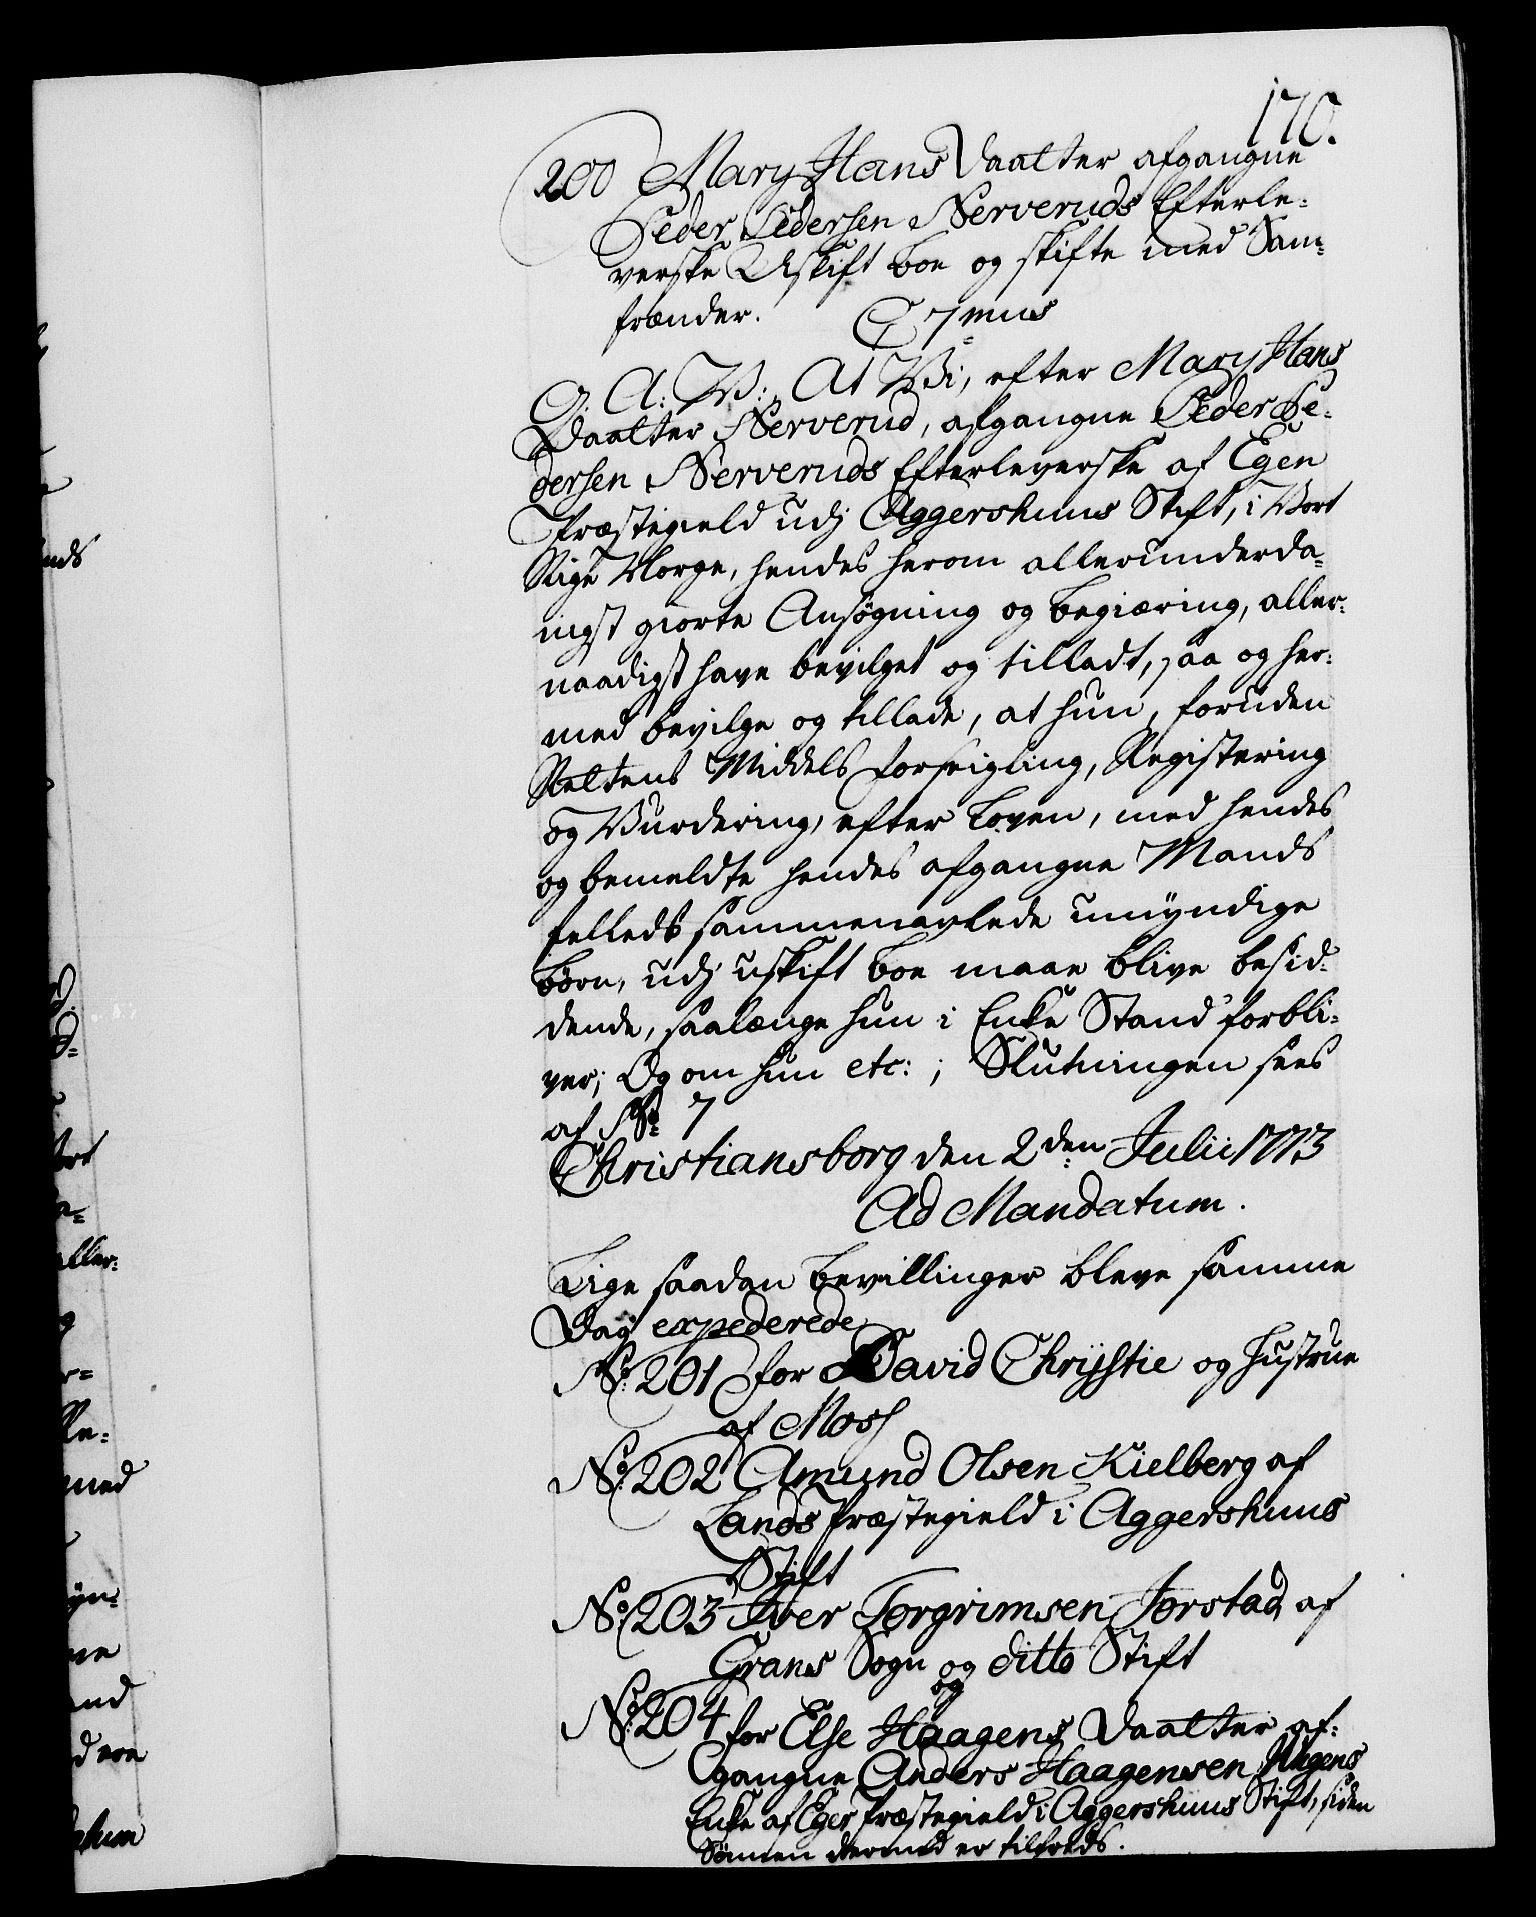 170.
200 Mary Hans Daatter afgangne
Peder Pedersen Nerveruds Efterle-
verske Uskift boe og skifte med Sam-
frænder. C 7mus
G: A: V: At Vi, efter Mary Hans
Daatter Nerverud, afgangne Peder Pe-
dersen Nerveruds Efterleverske af Egen
Præstegield udj Aggershuus Stift, i Vort
Rige Norge, hendes herom allerunderda-
nigst giorte Ansøgning og begiæring, aller-
naadigst have bevilget og tilladt, saa og her-
med bevilge og tillade, at hun, foruden
Rettens Middels forseigling, Registering
og Vurdering, efter Loven, med hendes
og bemeldte hendes afgangne Mands
felleds sammenavlede umyndige
børn, udj uskift boe maae blive besid-
dende, saalænge hun i Enke Stand forbli-
ver; Og om hun etc: ; Slutningen sees
af No 7
Christiansborg den 2den Julii 1773
Ad Mandatum.
Lige saadan bevillinger bleve samme
Dag expederede
No 201 for David Chrystie og hustrue
af Moss
No 202 Amund Olsen Kielberg af
Lands Præstegield i Aggershuus
Stift
No 203 Iver Torgrimsen Jorstad af
Grans Sogn og ditto Stift
og
No 204 for Else Haagens Daatter af-
gangne Anders Haagensen Hagens
Enke af Eger Præstegield i Aggershuus Stift, siden
Sönnen dermed er tilfreds.